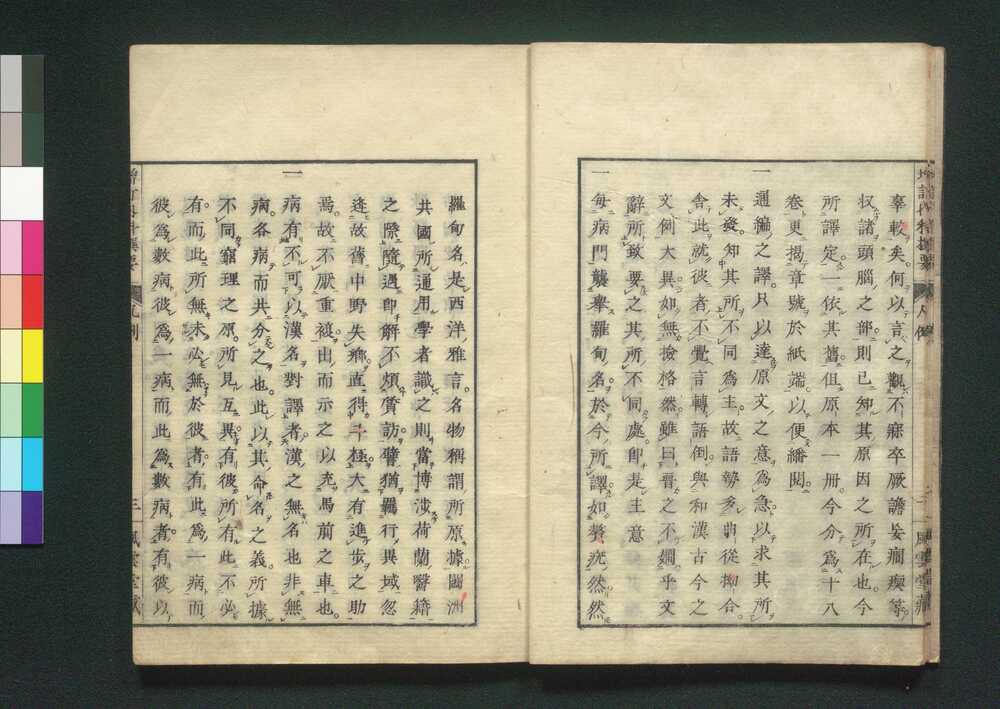 辜較矣何以言之觀不寐卒厥譫妄癇瘈等
収諸頭腦之部則已知其原因之所在也今
所譯定一依其舊但原本一册今分爲十八
卷更揭章號於紙端以便繙閲
一 通編之譯只以達原文之意爲急以求其所
未發知其所不同爲主故語勢多訓從拗合
舍此就彼者不覺言轉語倒與和漢古今之
文例大異如無撿格然雖曰晋之不嫺乎文
辭所致要之其所不同處即是主意
一 每病門襲擧羅甸名於今所譯如贅疣然然
羅甸名是西洋雅言名物稱謂所原據圖洲
共國所通用學者識之則當博渉荷蘭醫籍
之際隨遇即解不煩質訪譬猶羈行異域忽
逢故舊中野失鄕直得斗極大有進步之助
焉故不厭重複出而示之以充馬前之車也
一 病有不可以漢名對譯者漢之無名也非無
病各病而共分之也此以其命名之義所據
不同窮理之原所見互異有彼所有此不必
有而此所無未必無於彼者有此爲一病而
彼爲數病彼爲一病而此爲數病者有彼以
増訂内科撰要 凡例 三 風雲堂藏